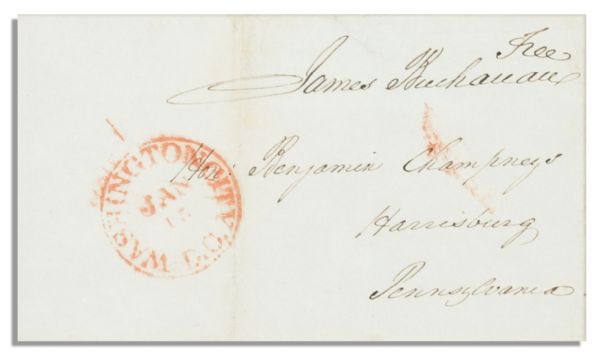 Free
James Buchanan
Hon: Benjamin Champneys
Harrisburg
Pennsylvania
WASHINGTON CITY D.C.
JAN